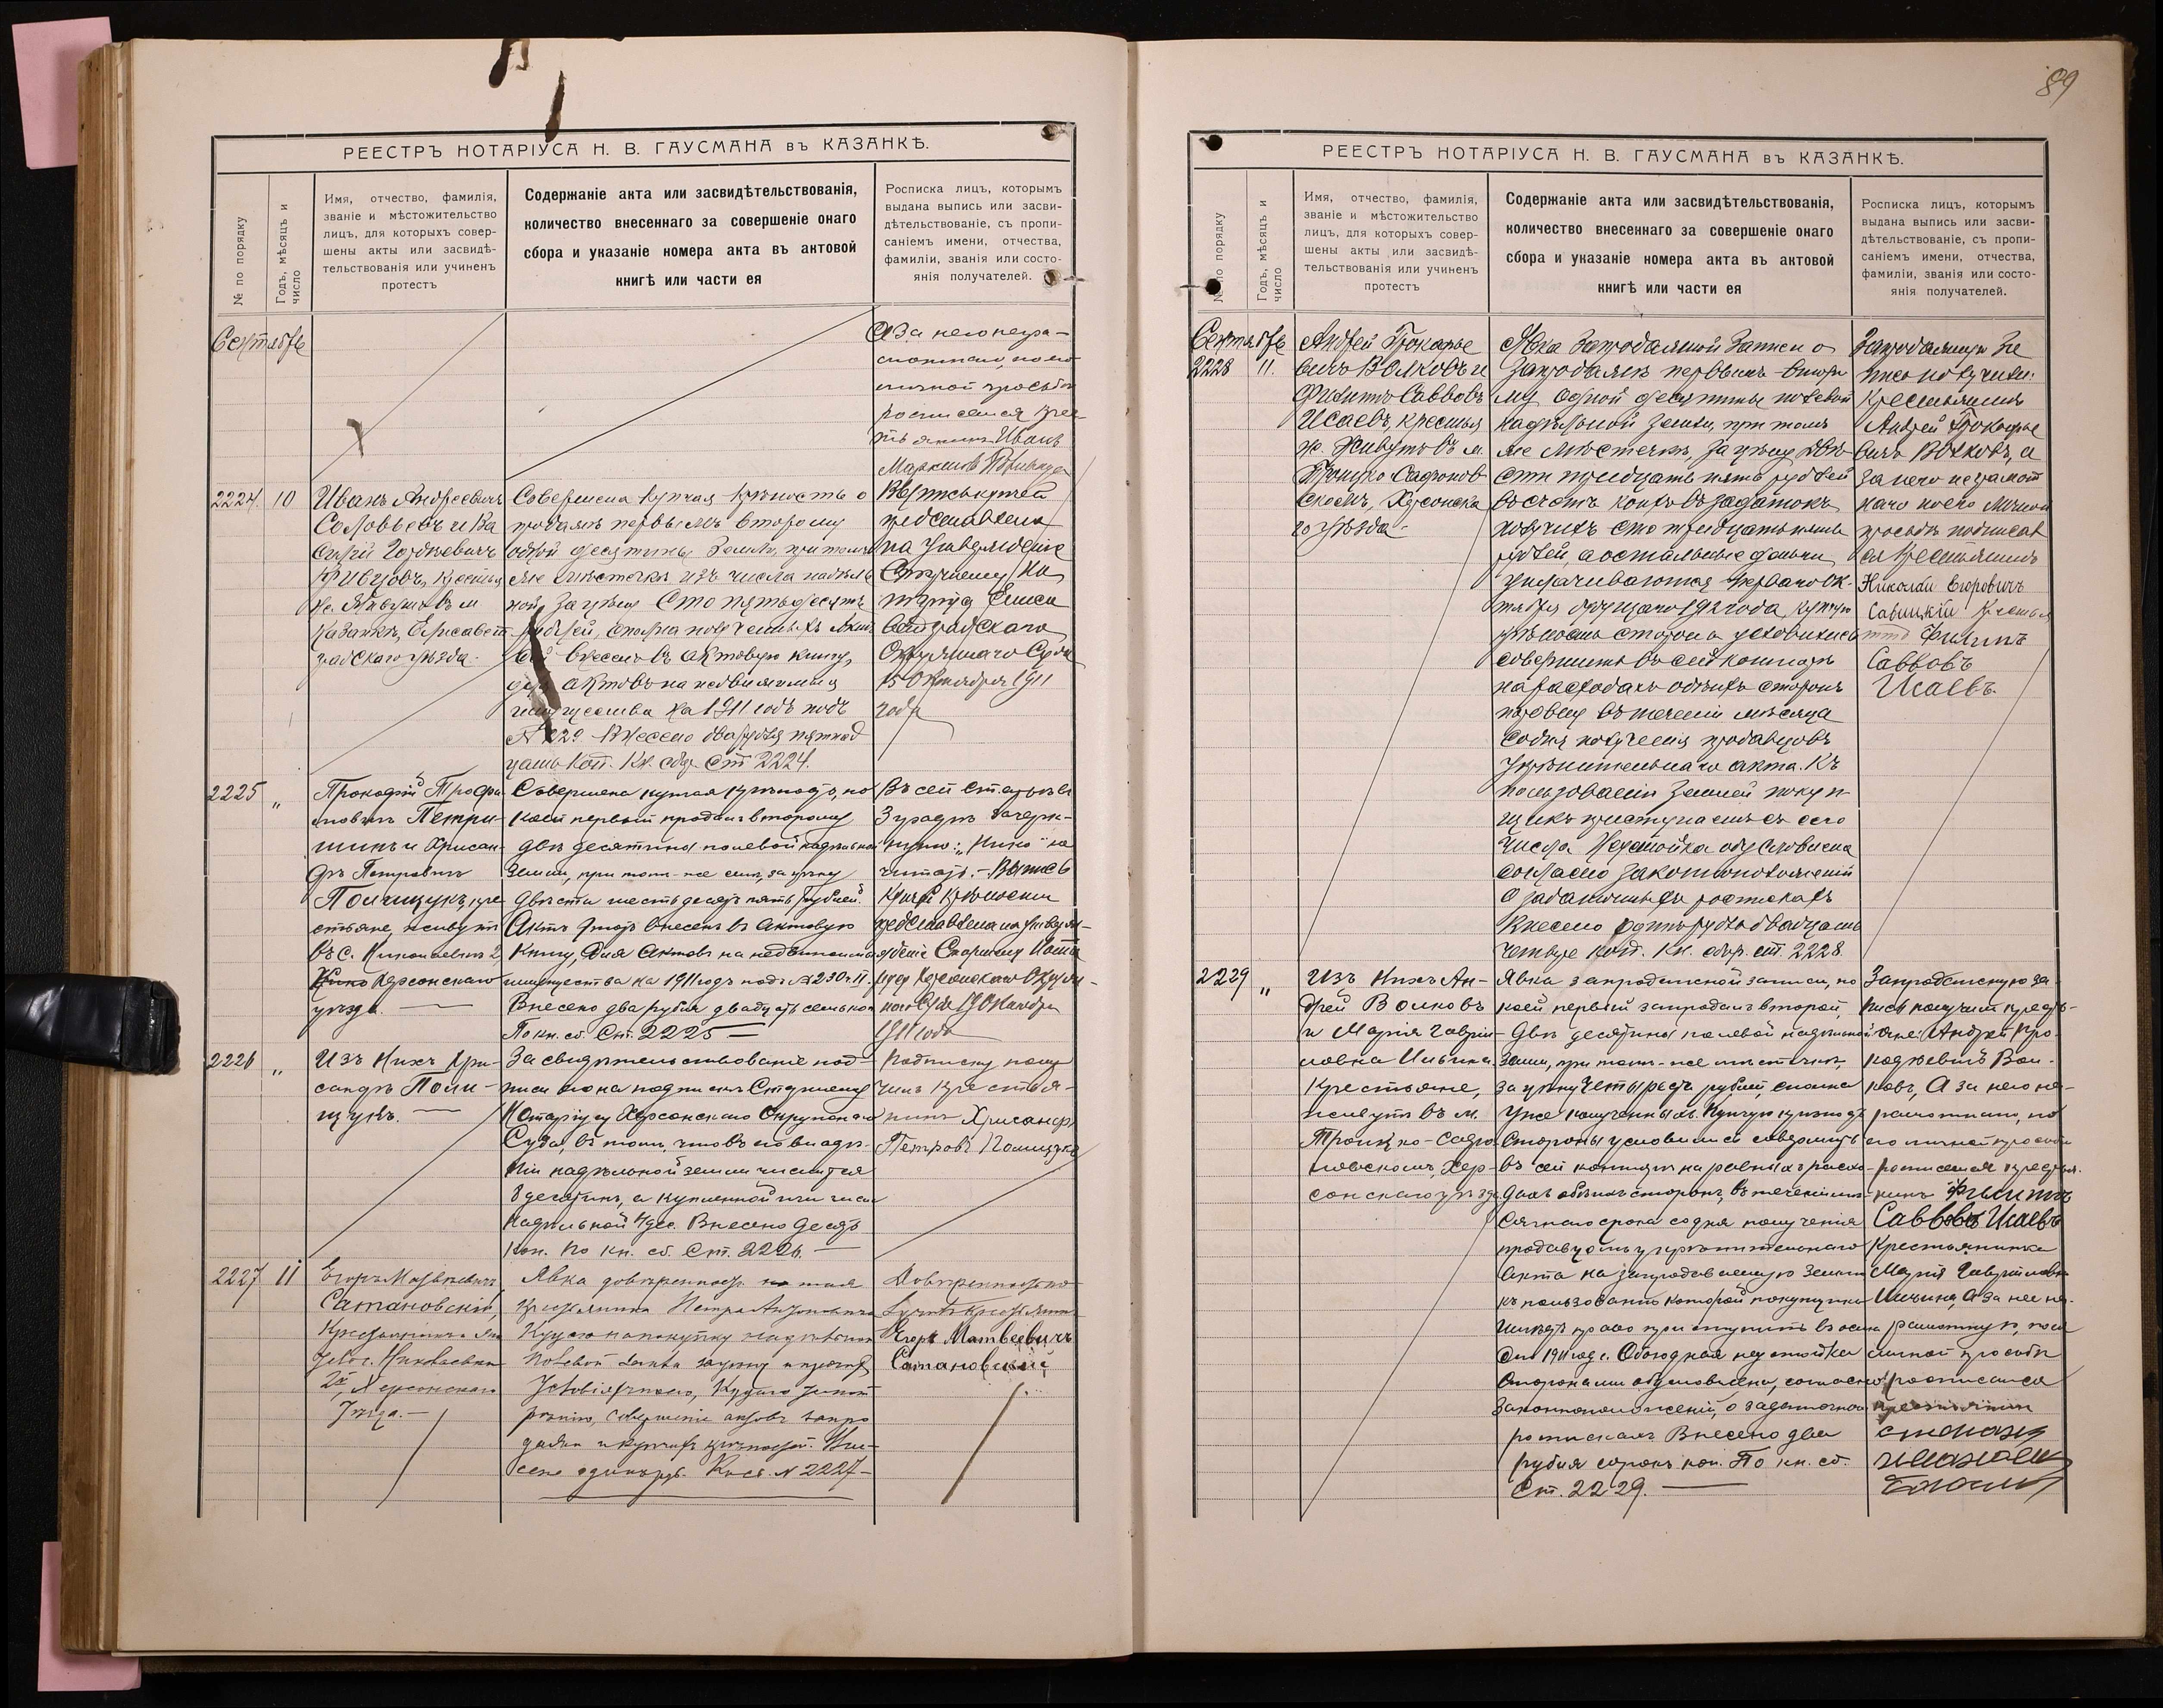 89
РЕЕСТРЪ НОТАРІУСА Н. В. ГАУСМАНА въ КАЗАНКѢ.
№ по порядку
Годъ, мѣсяцъ и
число
Имя, отчество, фамилія,
званіе и мѣстожительство
лицъ, для которыхъ совер-
шены акты или засвидѣ-
тельствованія или учиненъ
протестъ
Содержаніе акта или засвидѣтельствованія,
количество внесеннаго за совершеніе онаго
сбора и указаніе номера акта въ актовой
книгѣ или части ея
Росписка лицъ, которымъ
выдана выпись или засви-
дѣтельствованіе, съ пропи-
саніемъ имени, отчества,
фамиліи, званія или состо-
янія получателей.
Сентябрь
А за него негра-
мотнаго, по его
личной просьбѣ
росписался крес
тьянинъ Иванъ
2224. 10
Иванъ Андреевичъ
Соловьевъ и Ва
силій Гордѣевичъ
крестья
не. Живутъ въ м
Казанкѣ, Елисавет
градскаго уѣзда.
Совершена купчая крѣпость о
продажѣ первымъ второму
одной десятины земли, при томъ
же мѣстечкѣ изъ числа надѣль
ной, за цѣну сто пятьдесятъ
рублей, сполна полученныхъ. Актъ
сей внесенъ въ актовую книгу,
для актовъ на недвижимыя
имущества на 1911 годъ подъ
№ 229 Внесено два рубля пятнад
цать коп. Кн. сбр. ст 2224.
Выпись купчей
представлена
на утвержденіе
Старшему Но
таріусу Елиса
ветградскаго
Окружнаго Суда
15 Октября 1911
года
2225 „
Прокофій Трофи
мовичъ Петри-
шинъ и Хрисан-
фъ Петровичъ
Полищукъ, кре
стьяне, живутъ
въ с. Николаевкѣ 2
Херсонскаго
уѣзда.
Совершена купчая крѣпость, по
коей первый продалъ второму
двѣ десятины полевой надѣльной
земли, при томъ-же селѣ, за цѣну
двѣсти шестьдесятъ пять рублей.
Актъ этотъ внесенъ въ актовую
книгу, для актовъ на недвижимыя
имущества на 1911 годъ подъ № 230 ч. II.
Внесено два рубля двадцать семь коп
По кн. сб. Ст. 2225
Въ сей статьѣ въ
3 графѣ зачерк-
нуто: „Нико" не
читать. - Выпись
купчей крѣпости
представлена на утверж-
деніе Старшему Нота
ріусу Херсонскаго Окруж-
наго Суда 19 Октября
1911 года
2226 „
Изъ нихъ Хри-
санфъ Поли-
щукъ.
Засвидѣтельствованіе под-
писи его на подпискѣ Старшему
Нотаріусу Херсонскаго Окружнаго
Суда, въ томъ, что въ его владѣ-
ніи надѣльной земли числится
8 десятинъ, а купленной изъ числа
надѣльной 4 дес. Внесено десять
коп. По кн. сб. Ст. 2226.
Подписку полу
чилъ крестья-
нинъ Хрисанфъ
Петровъ Полищукъ
2227 11
Егоръ Матвѣевичъ
Сатановскій,
Крестьянинъ
с. Николаевки
2й, Херсонскаго
Уѣзда.
Явка довѣренности на имя
крестьянина Петра Антоновича
Куцаго на покупку надѣльной
полевой земли за цѣну и на
условіяхъ его, Куцаго усмот
рѣнію, совершеніе актовъ запро
дажи и купчихъ крѣпостей. Вне-
сено одинъ руб. Кн. сб. № 2227
Довѣренность по
лучилъ крестьянинъ
Егоръ Матвеевичъ
Сатановский
РЕЕСТРЪ НОТАРІУСА Н. В. ГАУСМАНА въ КАЗАНКѢ.
№ по порядку
Годъ, мѣсяцъ и
число
Имя, отчество, фамилія,
званіе и мѣстожительство
лицъ, для которыхъ совер-
шены акты или засвидѣ-
тельствованія или учиненъ
протестъ
Содержаніе акта или засвидѣтельствованія,
количество внесеннаго за совершеніе онаго
сбора и указаніе номера акта въ актовой
книгѣ или части ея
Росписка лицъ, которымъ
выдана выпись или засви-
дѣтельствованіе, съ пропи-
саніемъ имени, отчества,
фамиліи, званія или состо-
янія получателей.
Сентябрь
2228 11.
Андрей Прокофье
вичъ Волковъ и
Филиппъ Савовъ
Исаевъ, крестья
не. Живутъ въ м.
Троицко Сафонов
скомъ, Херсонска
го уѣзда.
Явка запродажной записи о
запродажѣ первымъ второ
му одной десятины полевой
надѣльной земли, при томъ
же мѣстечкѣ, за цѣну двѣ
сти тридцать пять рублей
въ счетъ коихъ въ задатокъ
получилъ сто тридцать пять
рублей, а остальные деньги
уплачиваются перваго Ок-
тября будущаго 1912 года, купчую
крѣпость стороны условились
совершить въ сей конторѣ
на расходахъ обѣихъ сторонъ
поровну въ теченіи мѣсяца
со дня полученія продавцомъ
укрѣпительнаго акта. Къ
пользованію землей покуп
щикъ приступаетъ съ сего
числа. Неустойка обусловлена
согласно законоположеній
о задаточныхъ роспискахъ
Внесено одинъ рубль двадцать
четыре коп. Кн. сбр. ст. 2228.
Запродажную за
пись получили:
крестьянинъ
Андрей Прокофье
вичъ Волковъ, а
за него неграмот
наго по его личной
просьбѣ подписал
ся крестьянинъ
Николай Егоровичъ
Савицкій
Филипъ
Саввовъ
Исаевъ.
2229 „
Изъ нихъ Ан-
дрей Волковъ
и Марія Гаврии-
ловна Ильина.
Крестьяне,
живутъ въ м.
Троицко-Сафо
новскомъ, Хер-
сонскаго уѣзда
Явка запродажной записи, по
коей первый запродалъ второй,
двѣ десятины полевой надѣльной
земли, при томъ-же мѣстечкѣ,
за цѣну четыреста рублей, сполна
уже полученныхъ. Купчую крѣпость
стороны условились совершить
въ сей конторѣ на равныхъ расхо-
дахъ обѣихъ сторонъ, въ теченіи мѣ-
сячнаго срока со дня полученія
продавцомъ укрѣпительнаго
акта на запроданную землю
къ пользованію которой покупщица
имѣетъ право приступить въ осень
сего 1911 года. Обоюдная неустойка
сторонами обусловлена, согласно
законоположеній, о задаточныхъ
роспискахъ. Внесено два
рубля сорокъ коп. По кн. сб.
Ст. 2229.
Запродажную за-
пись получили кресть-
яне: Андрей Про-
кофьевъ Вол-
ковъ, А за него не-
грамотнаго, по
его личной просьбѣ
росписался крестья-
нинъ Филипъ
Саввовъ Исаевъ
Крестьянинка
Марія Гавриловна
Ильина, а за нее не-
грамотную, по ея
личной просьбѣ
росписался
крестьянинъ